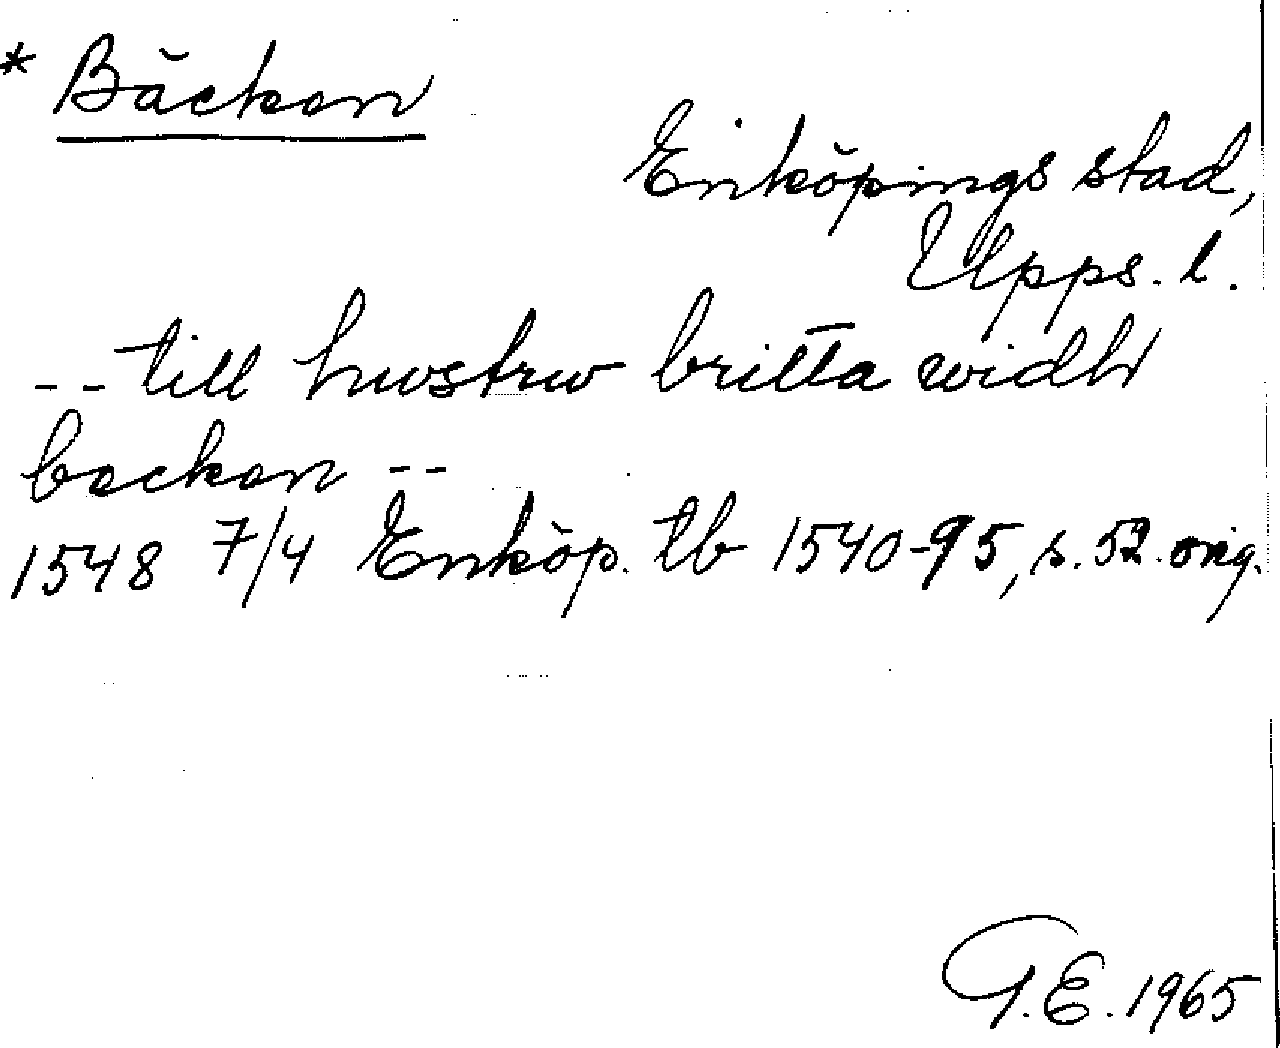 * Bäcken
Enköpings stad,
Upps. l.
-- till hwstrw britta widh
becken --
1548 7/4 Enköp. tb 1540-95, s. 52 orig.
G.E. 1965